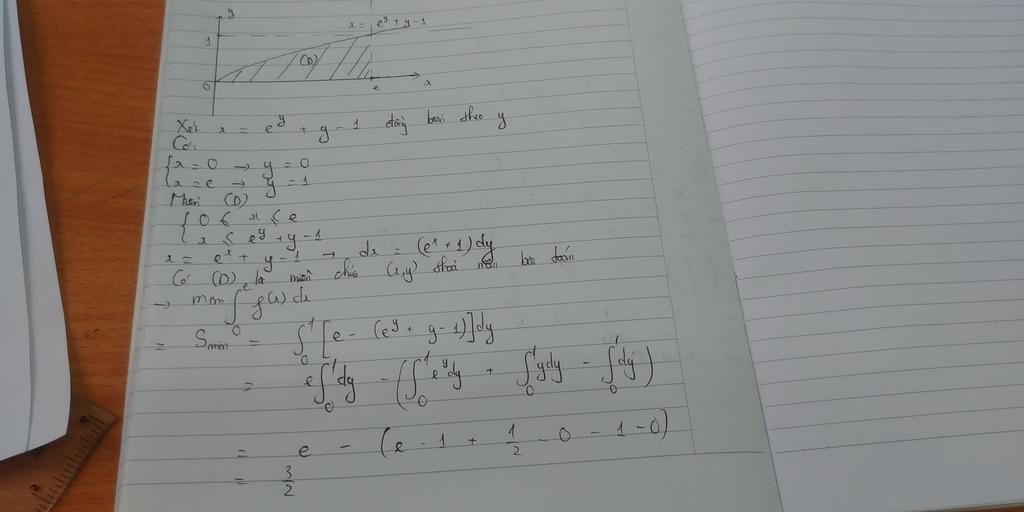 y
x = e^y + y - 1
1
(D)
0 e x
Xét x = e^y + y - 1 đồng biến theo y
Có:
{ x = 0 → y = 0
{ x = e → y = 1
Miền (D)
{ 0 ≤ x ≤ e
{ x ≤ e^y + y - 1
x = e^x + y - 1 → dx = (e^x + 1) dy
Có (D) là miền chứa (x,y) thoả mãn
→ min ∫_0^e f(x) dx
= S_min = ∫_0^1 [e - (e^y + y - 1)] dy
= e ∫_0^1 dy - (∫_0^1 e^y dy + ∫_0^1 y dy - ∫_0^1 dy)
= e - (e - 1 + 1/2 - 0 - 1 - 0)
= 3/2